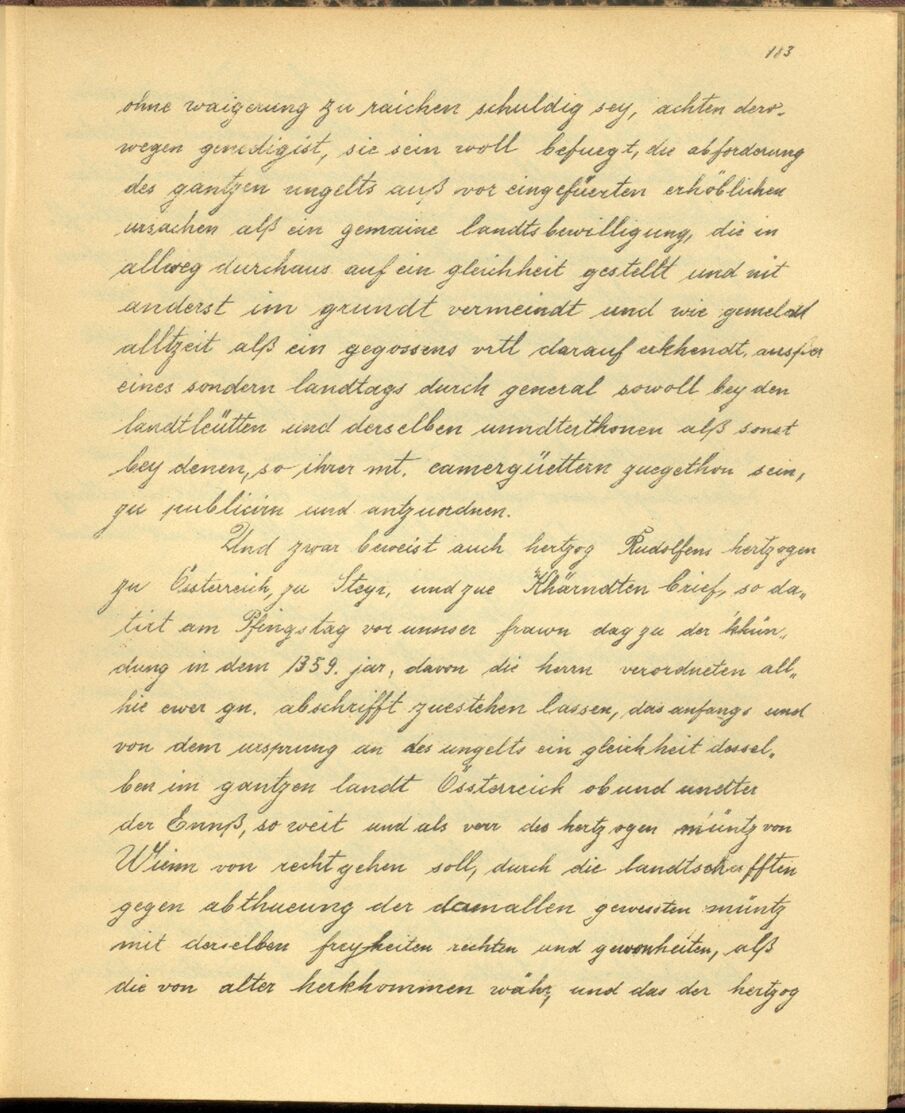 183
ohne waigerung zu raichen schuldig sey, achten dero„
wegen genedigist, sie sein woll befuegt, die abforderung
des gantzen ungelts auß vor eingefüerten erhöblichen
ursachen alß ein gemaine landtsbewilligung, die in
allweg durchaus auf ein gleichheit gestellt und nit
anderst im grundt vermeindt und wie gemelt
alltzeit alß ein gegossens vrtl darauf erkhendt,
eines sondern landtags durch general sowoll bey den
landtleütten und derselben unndterthonen alß sonst
bey denen, so ihrer mt. camergüettern zuegethon sein,
zu publiciern und antzuordnen.
Und zwar beweist auch hertzog Rudolfens hertzogen
zu Össterreich, zu Steyr, und zue Khärndten brief, so da„
tirt am Pfingstag vor unnser frawn dag zu der khün„
dung in dem 1359. jar, davon die herrn verordneten all„
hie ewer gn. abschrifft zuestehen lassen, das anfangs und
von dem ursprung an des ungelts ein gleichheit dessel„
ben im gantzen landt Össterreich ob und undter
der Ennß, so weit und als verr des hertzogen müntz von
Wienn von recht gehen soll, durch die landtschafften
gegen abthueung der damallen gewessten müntz
mit derselben freyheiten rechten und gewonheiten, alß
die von alter herkhommen währ, und das der hertzog